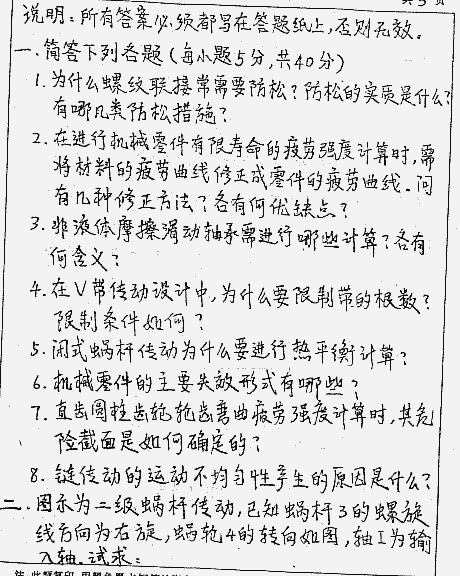 共3页
说明:所有答案必须都写在答题纸上,否则无效。
一.简答下列各题(每小题5分,共40分)
1.为什么螺纹联接常需要防松?防松的实质是什么?
有哪几类防松措施?
2.在进行机械零件有限寿命的疲劳强度计算时,需
将材料的疲劳曲线修正成零件的疲劳曲线.问
有几种修正方法?各有何优缺点?
3.非液体摩擦滑动轴承需进行哪些计算?各有
何含义?
4.在V带传动设计中,为什么要限制带的根数?
限制条件如何?
5.闭式蜗杆传动为什么要进行热平衡计算?
6.机械零件的主要失效形式有哪些?
7.直齿圆柱齿轮轮齿弯曲疲劳强度计算时,其危
险截面是如何确定的?
8.链传动的运动不均匀性产生的原因是什么?
二.图示为二级蜗杆传动,已知蜗杆3的螺旋
线方向为右旋,蜗轮4的转向如图,轴I为输
入轴.试求: